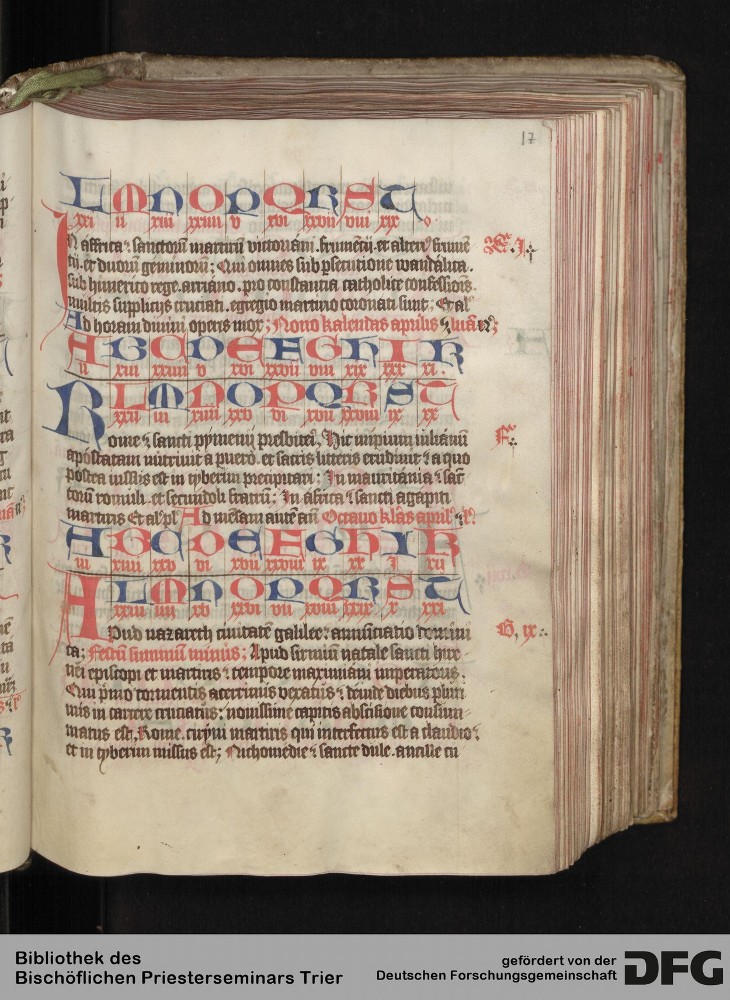 17
L M N O P Q R S T
xxi ii xiii xxiiii v xvi xxvii viii xix
In affrica ⁊ sanctorū martirū victoriani. frumētij. et alteri9 frumē
tij. et duorū geminorū; Qui omnes sub psecutione wandalica.
sub hunerico rege. arriano. pro constantia catholice confessiōis
multis supplicijs cruciati. egregio martirio coronati sunt; Et al
Ad horam divini operis mox; Nono kalendas aprilis
A B C D E F G H I K
ii xiii xxiiii v xvi xxvii viii xix xxx xi.
L M N O P Q R S T
xxii iii xiiii xxv vi xvii xxviii ix xx
Rome ⁊ sancti pymenij presbiteri, Hic impium iulianū
apostatam nutrivit a puero. et sacris litteris erudiuit ⁊ a quo
postea iussus est in tyberim precipitari; In mauritania ⁊ sāc
torū romuli. et secundoli fratrū; In africa ⁊ sancti agapiti
martiris Et al pl Ad mēsam autē an Octauo klās april
A B C D E F G H I K
iii xiiii xxv vi xvii xxviii ix xx i xii
L M N O P Q R S T
xxiii iiii xv xxvi vii xviii xxix x xxi
Apud nazareth ciuitatē galilee; annūciatio dominī
ca; Festū summū minus; Apud sirmiū natale sancti hire
nei episcopi et martiris ⁊ tempore maximiani imperatoris.
Qui pmo tormentis acerrimis vexatus ⁊ deinde diebus pluri
mis in carcere cruciatus; nouissime capitis abscisione consum
matus est, Rome. cirini martiris qui interfectus est a claudio ⁊
et in tyberim missus est; Nichomedie ⁊ sancte dule. ancille cu
E. i.
F.
G. ix.
Bibliothek des
Bischöflichen Priesterseminars Trier
gefördert von der
Deutschen Forschungsgemeinschaft
DFG